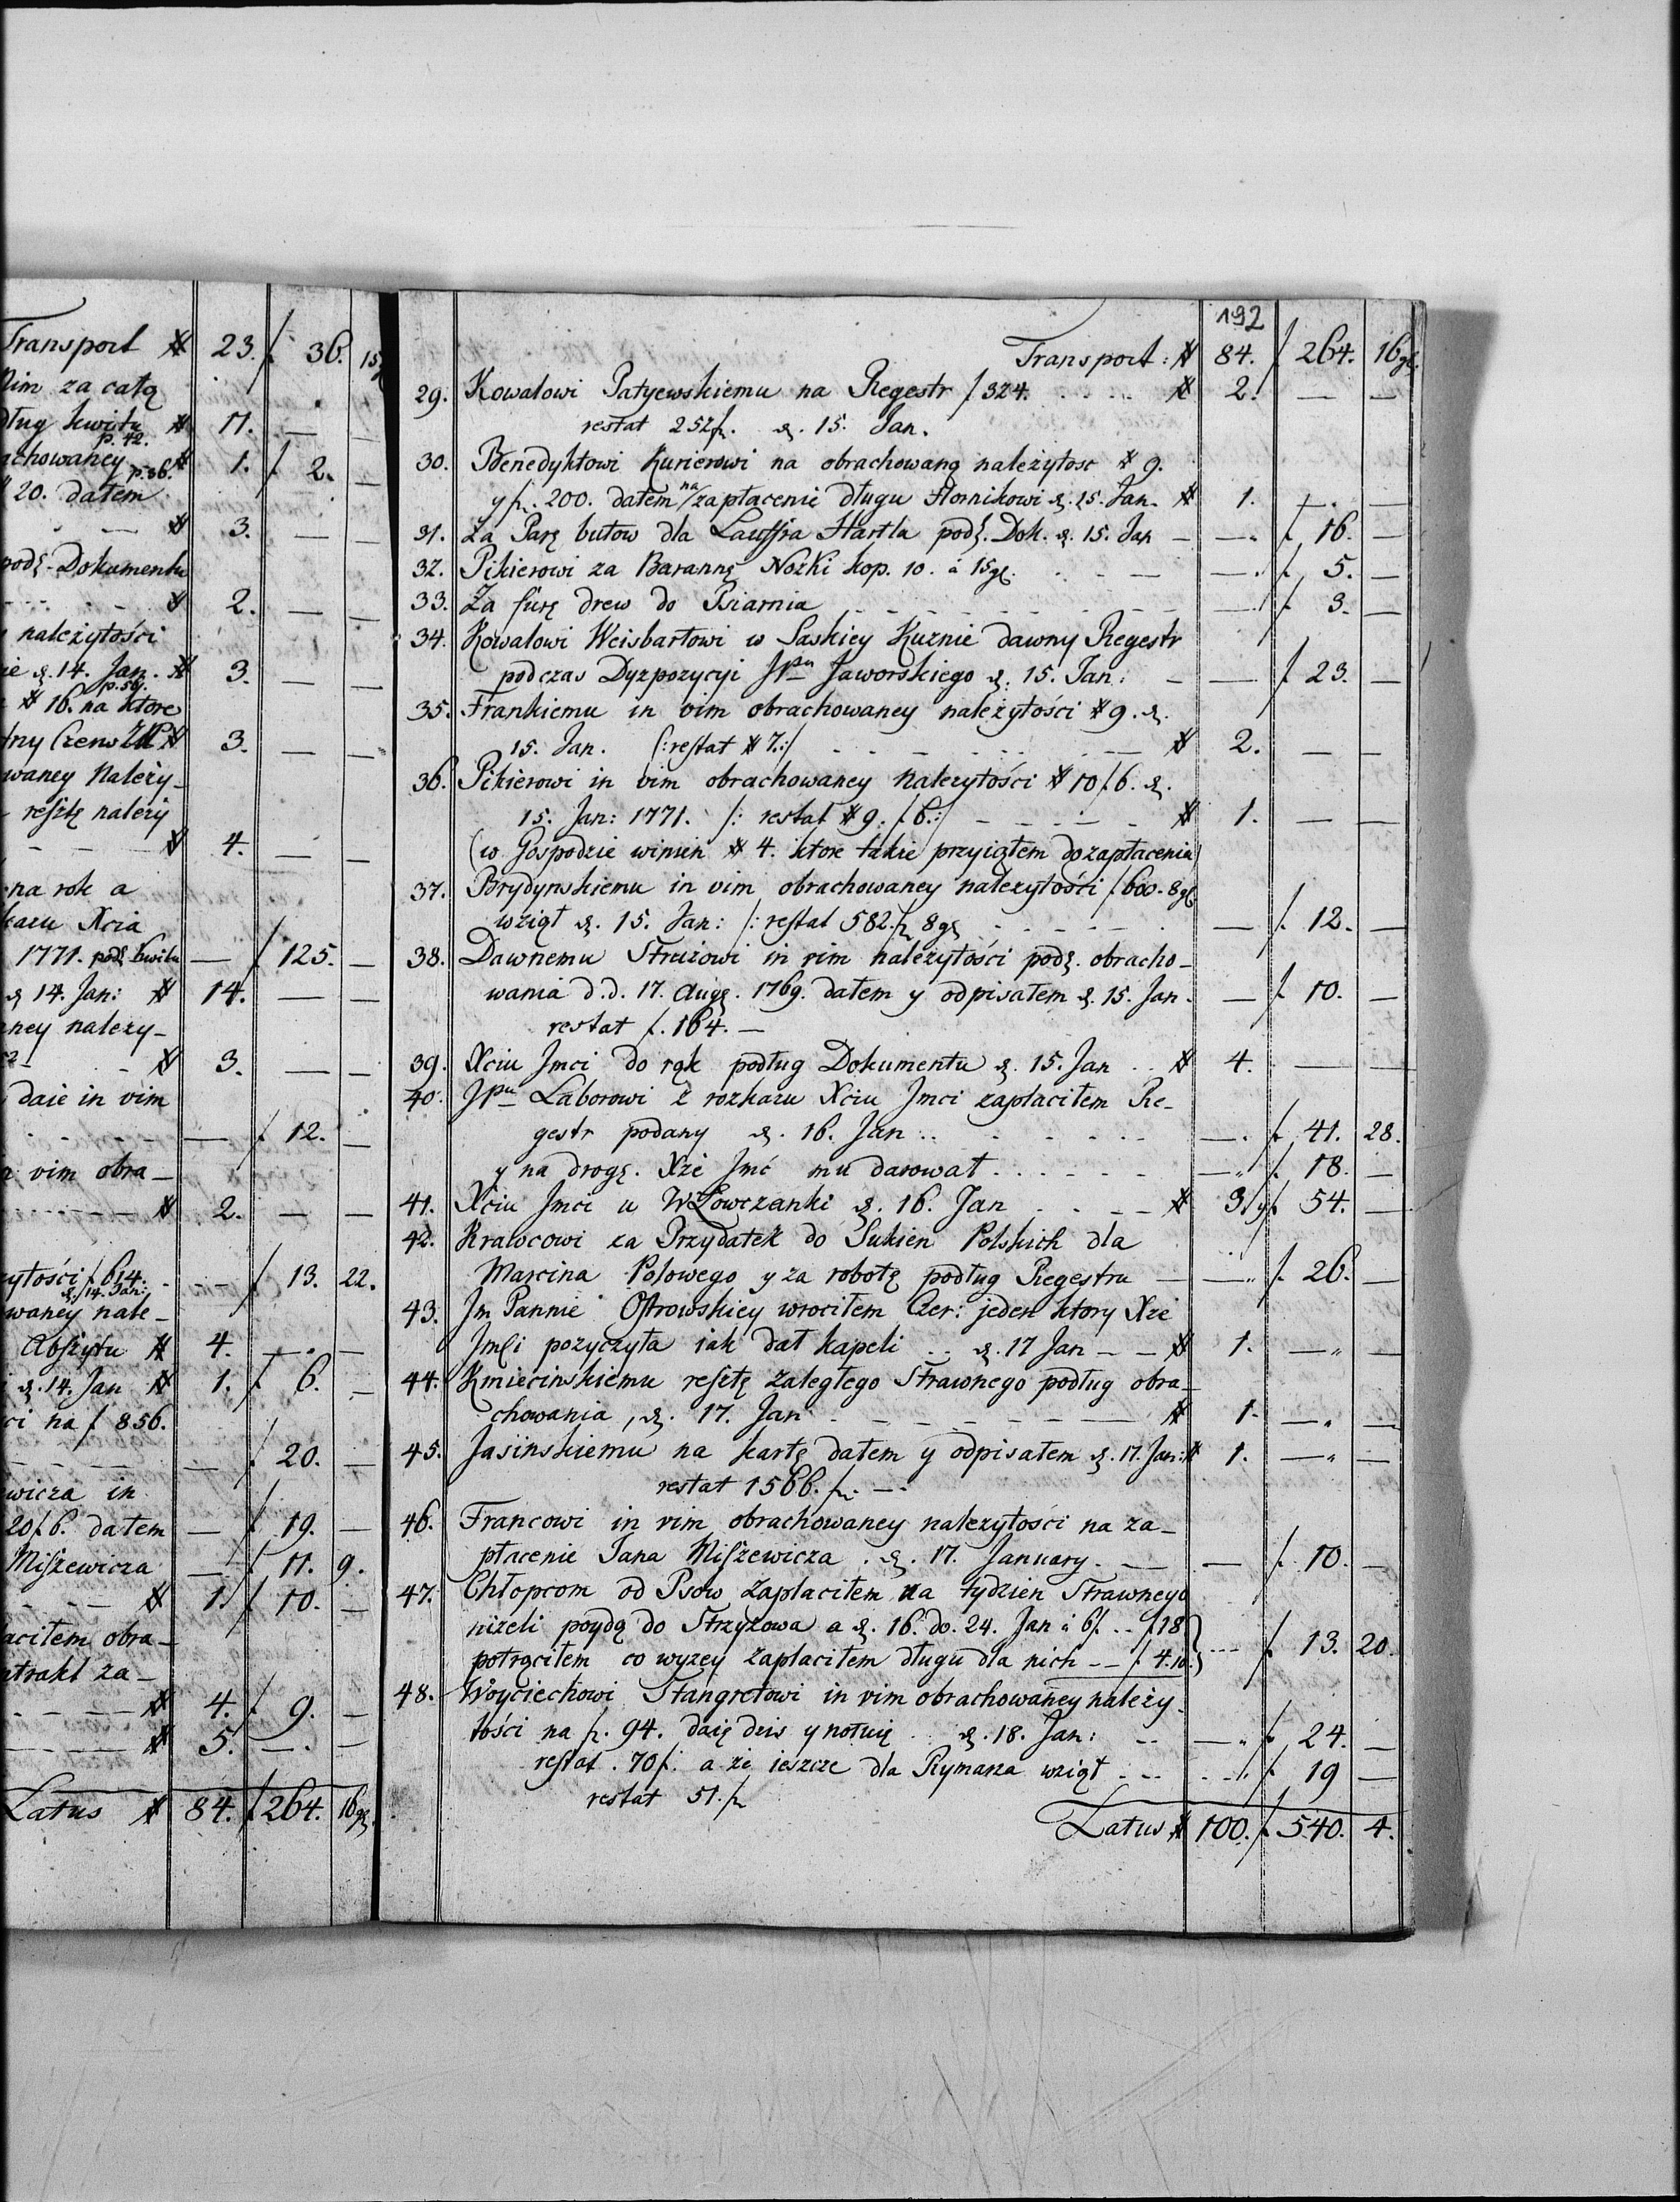 Transport # 23. f 36. 15
Nim za całą
dług kwitu # 11. —
p. 42.
achowaney p. 36. # 1. f 2. —
20. dałem
— # 3. — —
podł. Dokumentu
# 2. — —
należytości
ie d. 14. Jan. # 3. — —
p. 59.
# 16. na ktore
# 3. — —
waney Należy-
resztę należy
# 4. — —
na rok a
kazu Xcia
1771. podł kwitu — f 125. —
d 14. Jan: # 14. — —
ney należy-
# 3. — —
daie in vim
— f. 12. —
vim obra-
# 2. — —
żytości f 614. — f 13. 22.
d. 14. Jan:
waney nale-
Abszytu # 4. — —
d. 14. Jan # 1. f. 6. —
ci na f 856.
— f. 20. —
wicza in
20 f 6. dałem — f 19. —
Miszewicza — f 11. 9.
# 1. f 10. —
aciłem obra-
ntrakt za-
# 4. f. 9. —
# 5. — —
Latus # 84. f 264. 16 gl.
192
Transport: # 84. f 264. 16 gl.
29. Kowalowi Patyewskiemu na Regestr f 324. # 2. — —
restat 252 f. d. 15. Jan.
30. Benedyktowi Kurierowi na obrachowaną należytosc # 9.
y f. 200. dałem na zapłacenie długu Hornikowi d. 15. Jan. # 1. — —
31. Za Parę butow dla Lauffra Hartla podł. Dok. d. 15. Jan — — f. 16. —
32. Pikierowi za Barannę Nożki kop. 10. á 15 gl. — — f. 5. —
33. Za furę drew do Psiarnia — f. 3. —
34. Kowalowi Weisbartowi w Saskiey Kuznie dawny Regestr
podczas Dyzpozycyi JPu Jaworskiego d. 15. Jan: — — f. 23. —
35. Frankiemu in vim obrachowaney należytości # 9. d.
15. Jan. /: restat # 7.:/ # 2. — —
36. Pikierowi in vim obrachowaney należytości # 10 f 6. d.
15. Jan: 1771. /: restat # 9. f. 6.:/ # 1. — —
(w Gospodzie winien # 4. ktore takie przyiąłem do zapłacenia)
37. Brydynskiemu in vim obrachowaney należytości f. 600. 8 gl
wziął d. 15. Jan: /: restat 582. f 8 gl — f. 12. —
38. Dawnemu Struzowi in vim należytości podł. obracho-
wania d.d. 17. Aug. 1769. dałem y odpisałem d. 15. Jan. — f. 10. —
restat f. 164. —
39. Xciu Jmci do rąk podług Dokumentu d. 15. Jan # 4. — —
40. JPu Laborowi z rozkazu Xciu Jmci zapłaciłem Re-
gestr podany d. 16. Jan — f. 41. 28.
y na drogę. Xże Jmć mu darował — f. 18. —
41. Xciu Jmci u WŁowczanki d. 16. Jan # 3. y f. 54. —
42. Krawcowi za Przydatek do Sukien Polskich dla
Marcina Polowego y za robotę podług Regestru — — f. 26. —
43. Jm Pannie Ostrowskiey wrociłem Czer: jeden ktory Xże
Jmści pozyczyła iak dał kapeli d. 17 Jan — — # 1. — —
44. Kmiecinskiemu resztę zaległego Strawnego podług obra-
chowania, d. 17. Jan — # 1. — —
45. Jasinskiemu na kartę dałem y odpisałem d. 17. Jan: # 1. — —
restat 1566. f. —
46. Francowi in vim obrachowaney należytości na za-
płacenie Jana Miszewicza. d. 17. January. — — f. 10. —
47. Chłopcom od Psow zapłaciłem na tydzien Strawnego
niżeli poydą do Strzyżowa a d. 16. do. 24. Jan á 6 f. .. f 18
potrąciłem co wyzey zapłaciłem długu dla nich — — f 4. 10. } — f. 13. 20.
48. Woyciechowi Stangretowi in vim obrachowaney należy-
tości na f. 94. daię dzis y notuię d. 18. Jan: — — f. 24. —
restat. 70 f: a że ieszcze dla Rymarza wziął — f 19 —
restat 51. f
Latus # 100. f. 540. 4.